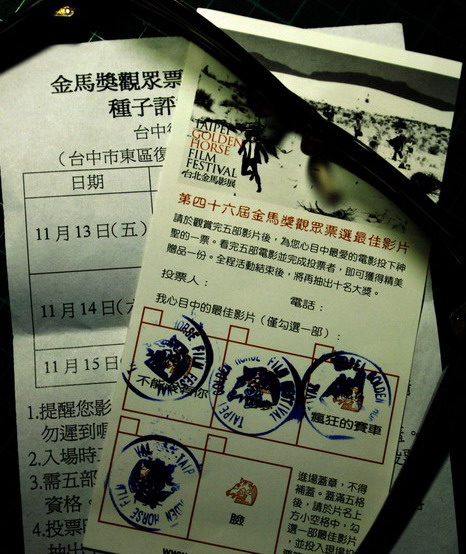 金馬獎觀眾票
種子評
台中
（台中市東區復
日期
11月13日(五)
11月14日(六
11月15日
1.提醒您影
勿遲到喔
2.入場時
3.需五部
資格。
4.投票時
抽出
TAIPEI
GOLDEN
HORSE
FILM
FESTIVAL
台北金馬影展
第四十六屆金馬獎觀眾票選最佳影片
請於觀賞完五部影片後，為您心目中最愛的電影投下神
聖的一票。看完五部電影並完成投票者，即可獲得精美
贈品一份。全程活動結束後，將再抽出十名大獎。
投票人：
電話：
我心目中的最佳影片（僅勾選一部）：
不能
你
瘋狂的賽車
臉
進場蓋章，不得
補蓋。蓋滿五格
後，請於片名上
方小空格中，勾
選一部最佳影片
，並投入現場投
www